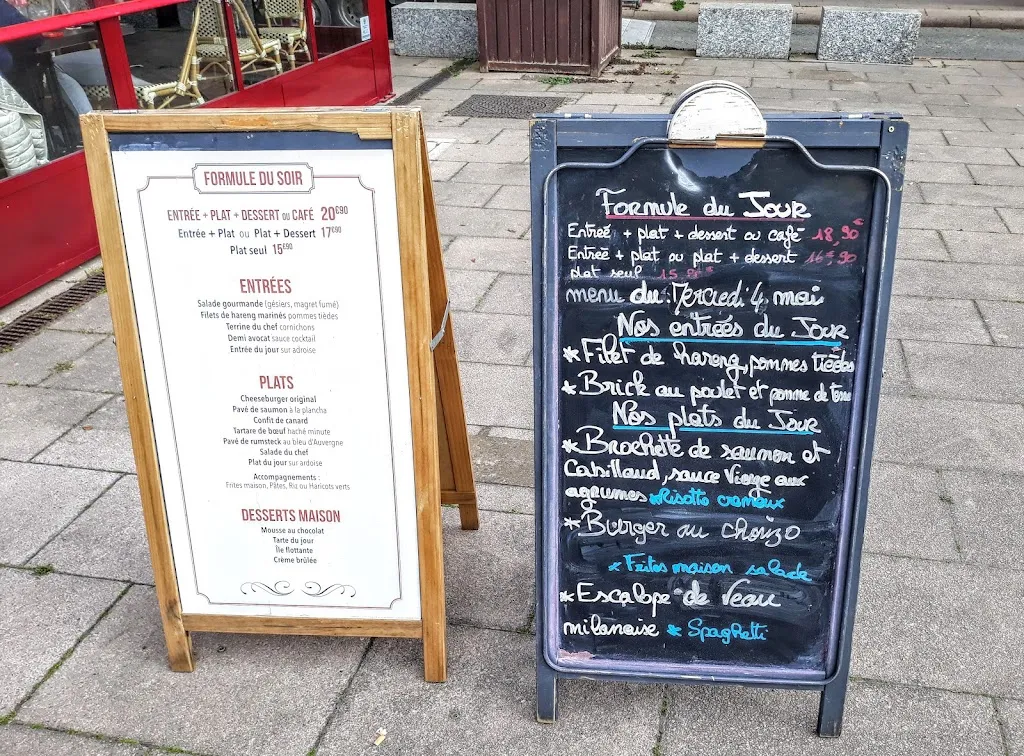 FORMULE DU SOIR
ENTRÉE + PLAT + DESSERT OU CAFÉ 20€90
Entrée + Plat ou Plat + Dessert 17€90
Plat seul 15€90
ENTRÉES
Salade gourmande (gésiers, magret fumé)
Filets de hareng marinés pommes tièdes
Terrine du chef cornichons
Demi avocat sauce cocktail
Entrée du jour sur adroise
PLATS
Cheeseburger original
Pavé de saumon à la plancha
Confit de canard
Tartare de bœuf haché minute
Pavé de rumsteck au bleu d'Auvergne
Salade du chef
Plat du jour sur ardoise
Accompagnements :
Frites maison, Pâtes, Riz ou Haricots verts
DESSERTS MAISON
Mousse au chocolat
Tarte du jour
Île flottante
Crème brûlée
Formule du Jour
Entreé + plat + dessert ou café 18,90€
Entreé + plat ou plat + dessert 16€,90
plat seul 15
menu du: Mercredi 4 mai
Nos entreés du Jour
* Filet de hareng, pommes tiedes
* Brick au poulet et pomme de terre
Nos plats du Jour
* Brochette de saumon et
Cabillaud, sauce Vierge aux
agrumes * Risotto cremeux
* Burger au chorizo
* Frites maison salade
* Escalope de veau
milanaise * Spaghetti